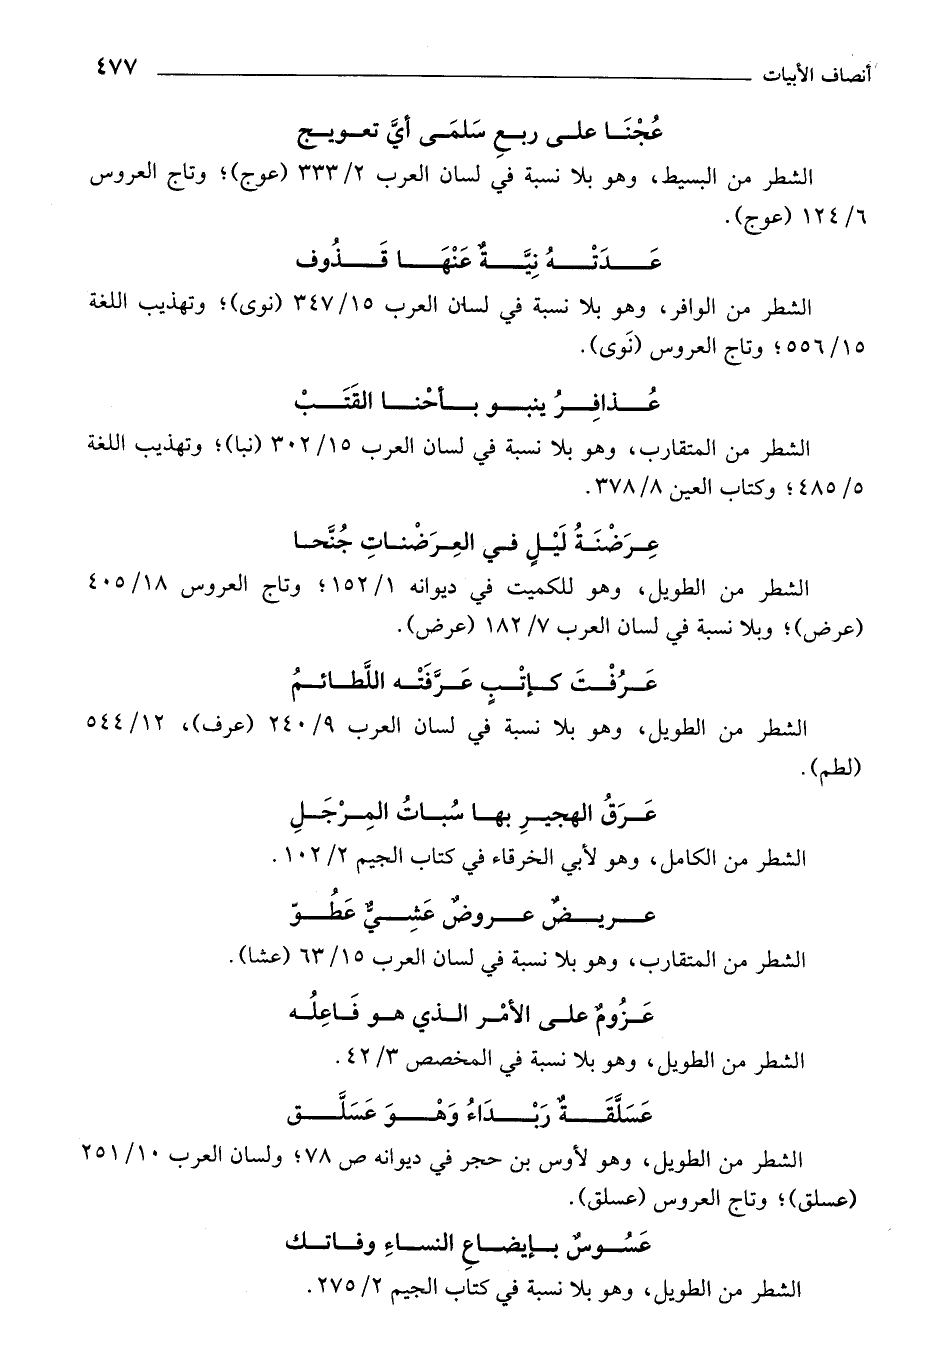 أنصاف الأبيات ٤٧٧
عُجْنَا على ربعِ سَلمَى أيَّ تعويج
الشطر من البسيط، وهو بلا نسبة في لسان العرب ٢/ ٣٣٣ (عوج)؛ وتاج العروس
٦/ ١٢٤ (عوج).
عَدَتْهُ نِيَّةٌ عَنْهَا قَذُوف
الشطر من الوافر، وهو بلا نسبة في لسان العرب ١٥/ ٣٤٧ (نوى)؛ وتهذيب اللغة
١٥/ ٥٥٦؛ وتاج العروس (نَوى).
عُذافِرُ ينبو بأحْنا القَتَبْ
الشطر من المتقارب، وهو بلا نسبة في لسان العرب ١٥/ ٣٠٢ (نبا)؛ وتهذيب اللغة
٥/ ٤٨٥؛ وكتاب العين ٨/ ٣٧٨.
عِرَضْنَةُ لَيْلٍ في العِرَضْناتِ جُنَّحا
الشطر من الطويل، وهو للكميت في ديوانه ١/ ١٥٢؛ وتاج العروس ١٨/ ٤٠٥
(عرض)؛ وبلا نسبة في لسان العرب ٧/ ١٨٢ (عرض).
عَرُفْتَ كإتْبٍ عَرَّفَتْه اللَّطائمُ
الشطر من الطويل، وهو بلا نسبة في لسان العرب ٩/ ٢٤٠ (عرف)، ١٢/ ٥٤٤
(لطم).
عَرَقُ الهجيرِ بها سُباتُ المِرْجَلِ
الشطر من الكامل، وهو لأبي الخرقاء في كتاب الجيم ٢/ ١٠٢.
عريضٌ عروضٌ عَشِيٌّ عَطُوّ
الشطر من المتقارب، وهو بلا نسبة في لسان العرب ١٥/ ٦٣ (عشا).
عَزُومٌ على الأمْر الذي هو فَاعِلُه
الشطر من الطويل، وهو بلا نسبة في المخصص ٣/ ٤٢.
عَسَلَّقَةٌ رَبْدَاءُ وَهْوَ عَسَلَّق
الشطر من الطويل، وهو لأوس بن حجر في ديوانه ص ٧٨؛ ولسان العرب ١٠/ ٢٥١
(عسلق)؛ وتاج العروس (عسلق).
عَسُوسٌ بإيضاعِ النساءِ وفاتك
الشطر من الطويل، وهو بلا نسبة في كتاب الجيم ٢/ ٢٧٥.